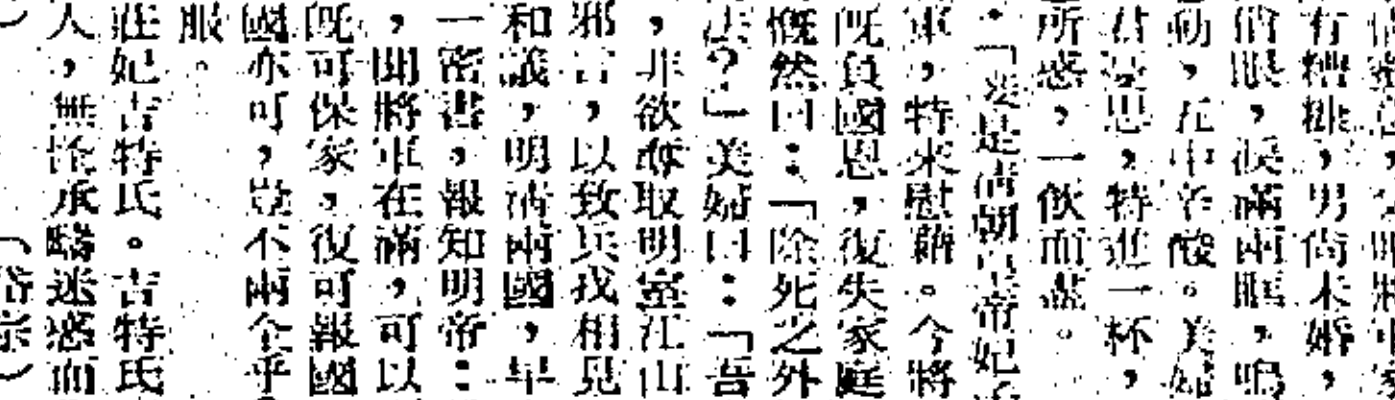 有糟糠，男尚未婚，
眼，淚滿兩眶，嗚
勳，五中辛酸。美婦
君是思，特進一杯，
所惑，一飲而盡。
：「妾是清朝皇帝妃
軍，特來慰藉。今將
既負國恩，復失家庭
慨然曰：「除死之外
法？」美婦曰：「吾
，非欲奪取明室江山
邪言，以致兵戎相見
和議，明清兩國，早
一密書，報知明帝：
，聞將軍在滿，可以
既可保家，復可報國
國亦可，豈不兩全乎
服。
莊妃吉特氏。吉特氏
人，無怪承疇迷惑而
（俗宗）